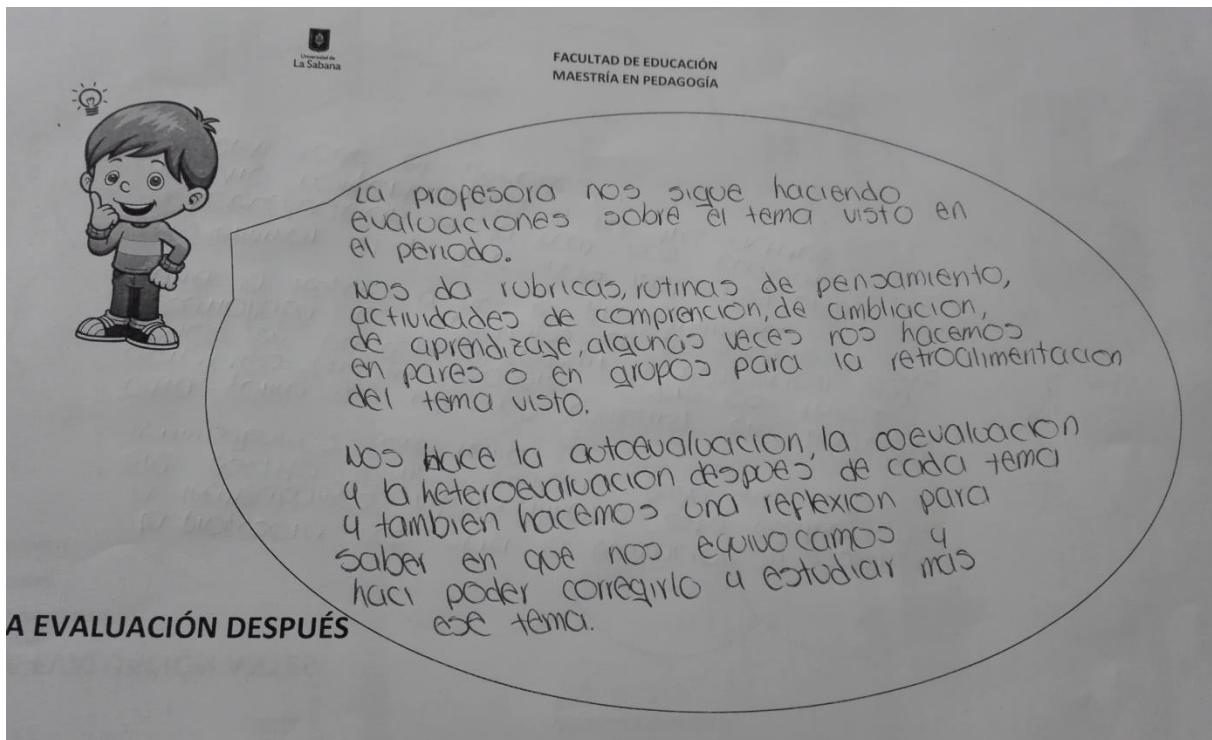 Universidad de
La Sabana
FACULTAD DE EDUCACIÓN
MAESTRÍA EN PEDAGOGÍA
La profesora nos sigue haciendo
evaluaciones sobre el tema visto en
el periodo.
Nos da rubricas, rutinas de pensamiento,
actividades de comprencion, de ambliacion,
de aprendizaje, algunas veces nos hacemos
en pares o en grupos para la retroalimentacion
del tema visto.
Nos hace la autoevaluacion, la coevaluacion
y la heteroevaluacion despues de cada tema
y tambien hacemos una reflexion para
saber en que nos equivocamos y
haci poder corregirlo y estudiar más
ese tema.
A EVALUACIÓN DESPUÉS